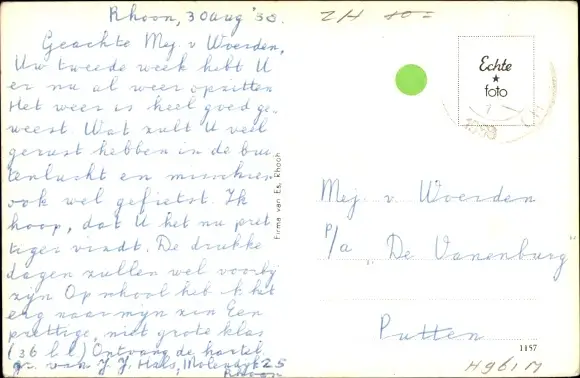 Rhoon, 30 aug '50.
Geachte Mej. v Woerden,
Uw tweede week hebt U
er nu al weer opzitten
Het weer is heel goed ge-
weest Wat zult U veel
gerust hebben in de bui
tenlucht en misschien
ook wel gefietst. Ik
hoop, dat U het nu pret
tiger vindt. De drukke
dagen zullen wel voorbij
zijn Op school heb ik het
erg naar mijn zin Een
prettige, niet grote klas
(36 l l) Ontvang de hartel.
gr. van J. J. Hals, Molendijk 25
Rhoon
ZH
Firma van Es, Rhoon
Echte
foto
Mej. v. Woerden
p/a „De Vanenburg"
Putten
1157
H961M